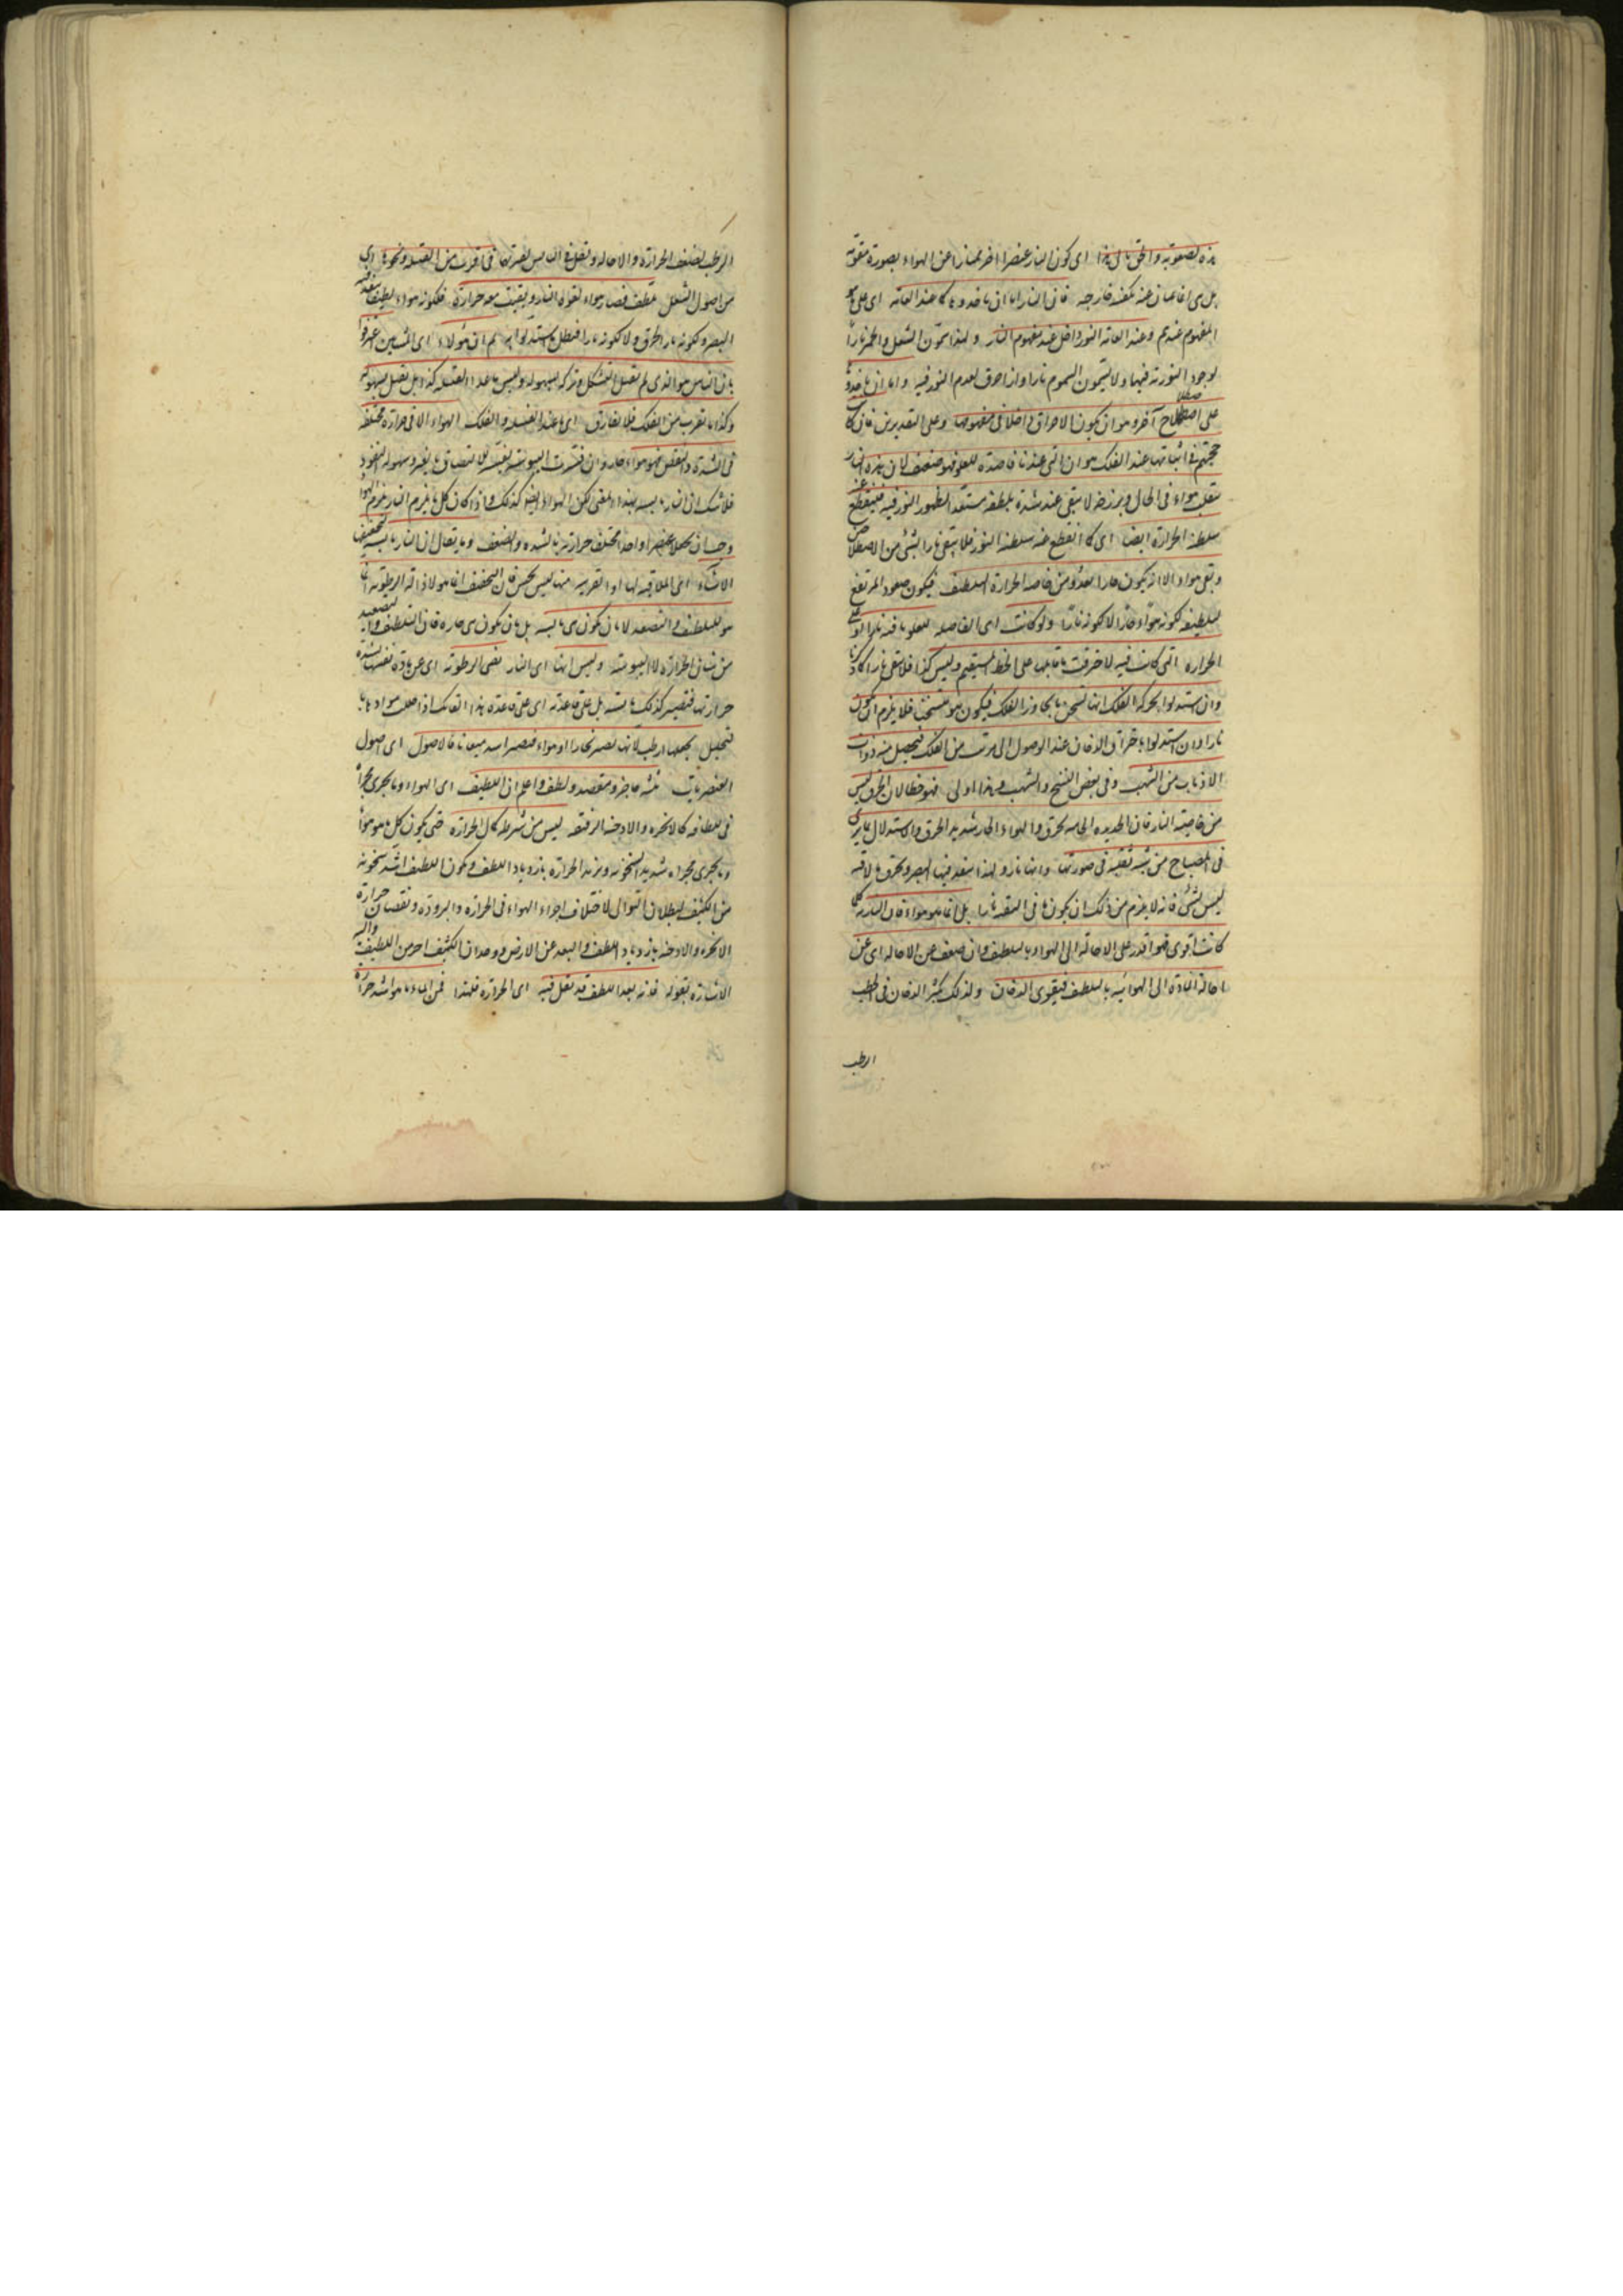 اى كون النار عنصرا اخر ممتازا عن الهواء بصورة مقومة
فان النار اما ان ياخذوها كما عند العامة اى على ما هو
المفهوم عندهم وعند العامة النور داخل عند مفهوم النار ولهذا يسمون الشعل والجمر نارا
لوجود النورية فيها ولا يسمون السموم نارا وان احرق لعدم النور فيه واما ان ياخذوها
على اصطلاح آخر وهو ان يكون الاحراق داخلا فى مفهومها وعلى التقديرين فان كانت
حجتهم فى اثباتها عند الفلك هو ان التى عندنا قاصدة للعلو فهو ضعيف لان هذه النار
تنقلب هواء فى الحال ويبرز ضه لا يبقى عند شدة تلطفه مستعدا لظهور النور فيه فينقطع عنه
سلطنة الحرارة ايضا اى كما انقطع عنه سلطنة النور فلا يبقى نارا بشئ من الاصطلاحين
وبقى هواء الا انه يكون حارا بعد ومن خاصة الحرارة التلطيف فيكون صعود المرتفع
لتلطيفه لكونه هواء حارا لا لكونه نارا ولو كانت اى القاصدة للعلو باقية نارا او على
الحرارة التى كانت فيه لاحرقت ما قابلها على الخط المستقيم وليس كذا فلا يبقى نارا
وان استدلوا بحركة الفلك انها تسخن ما يجاوز الفلك فيكون هواء متسخنا فلا يلزم ان يكون
نارا وان استدلوا باحتراق الادخان عند الوصول الى قرب من الفلك فيحصل منه ذوات
الاذناب من الشهب وفى بعض النسخ والشهب وهذا اولى فهو خطا لان الحرق ليس
من خاصية النار فان الحديدة الحامية تحرق والهواء الحار شديد الحرق والاستدلال بما يرى
فى المصباح من شبه ثقبة فى صورتها وانها نار ولهذا ينفذ فيها البصر وتحرق ما لاقته
ليس بشئ فانه لا يلزم من ذلك ان يكون ما فى الثقبة نارا بل انما هو هواء فان النارية كلما
كانت اقوى فهو اقدر على الاحالة الى الهواء بالتلطيف وان ضعف عن الاحالة اى عن
احالة المادة الى الهوائية بالتلطيف فيقوى الدخان ولذلك يكثر الدخان فى الحطب
الرطب
الرطب لضعف الحرارة والاحالة ويقل فى اليابس لقدرتها فما قرب من الفتيلة ونحوها اى
من اصول الشعل تلطف فصار هواء لقوة النار وبقيت معه حرارة فلكونه هواء لطيفا ينفذ فيه
البصر ولكونه حارا احرق ولا لكونه نارا فبطل ما استدلوا به ثم ان هؤلاء اى المشائين اعترفوا
بان اليابس هو الذى لم يقبل التشكل وتركه بسهولة وليس ما عند الفتيلة كذا بل يقبل بسهولة
وكذا ما يقرب من الفلك فلا يفارق اى ما عند الفتيلة والفلك الهواء الا فى حرارة مختلفة
فى الشدة والنقص فهو هواء حار وان فسرت اليبوسة بقلة الالتصاق بالغير وسهولة النفوذ
فلا شك ان النار يابسة بهذا المعنى لكن الهواء ايضا كذلك واذا كان كل ما يلزم النار يلزم الهواء
وجب ان يجعلا عنصرا واحدا مختلف حرارته بالشدة والضعف وما يقال ان النار يابسة لتجفيف
الاشياء اى الملاقية لها او القريبة منها ليس بحسن فان التجفيف انما هو لازالة الرطوبة
هو للتلطيف والتصعيد لا بان يكون هى يابسة بل بان يكون هى حارة فان التلطيف والتصعيد
من شان الحرارة لا اليبوسة وليس انها اى النار تفنى الرطوبة اى عن مادة نفسها لشدة
حرارتها فتصير كذلك يابسة بل على قاعدته اى على قاعدة هذا القائل اذا حلت موادها
فتحليل يجعلها ارطب لانها تصير بخارا او هواء فتصير اشد ميعانا فالاصول اى اصول
العنصريات ثلثة حاجز ومقتصد ولطيف واعلم ان اللطيف اى الهواء وما يجرى مجراه
فى اللطافة كالابخرة والادخنة الرقيقة ليس من شرطه كمال الحرارة حتى يكون كل ما هو هواء
وما يجرى مجراه شديد السخونة ويزيد الحرارة بازدياد اللطف ويكون اللطيف اشد سخونة
من الكثيف لبطلان التوالى لاختلاف اجزاء الهواء فى الحرارة والبرودة ونقصان حرارة
الابخرة والادخنة بازدياد اللطف والبعد عن الارض ووجدان الكثيف احر من اللطيف واليه
الاشارة بقوله فانه بعد اللطف قد تقل فيه اى الحرارة فلهذا فمن الماء ما هو اشد حرارة